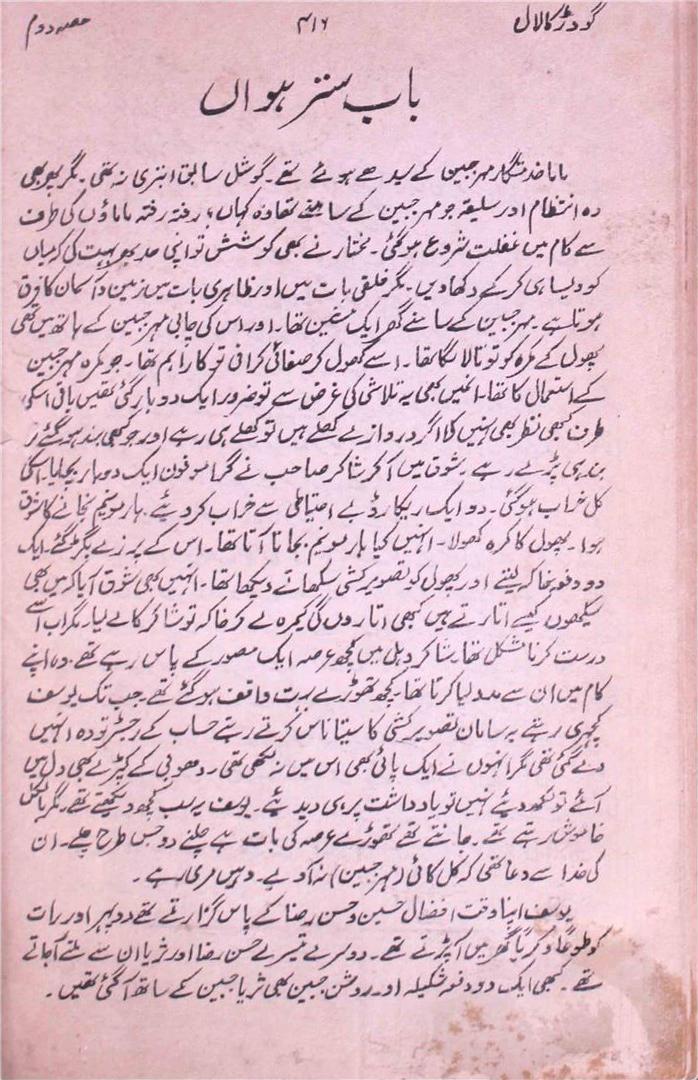 گودڑ کا لال ۴۱۶ حصہ دوم
باب ستر ہواں
ماما خدمتگار مہر جبین کے سیدھے ہوئے تھے۔ گو مثل سابق ابتری نہ تھی۔ مگر پھر بھی
وہ انتظام اور سلیقہ جو مہر جبین کے سامنے تھا وہ کہاں؛ رفتہ رفتہ ماماؤں کی طرف
سے کام میں غفلت شروع ہو گئی۔ مختار نے بھی کوشش تو اپنی حد بھر بہت کی کہ یہاں
کو ویسا ہی کر کے دکھاویں۔ مگر خلقی بات میں اور ظاہری بات میں زمین و آسمان کا فرق
ہوتا ہے۔ مہر جبین کے سامنے گھر ایک مشین تھا۔ اور اس کی چابی مہر جبین کے ہاتھ میں تھی
پھول کے کمرہ کو تو تالا لگا تھا۔ اسے کھول کر صفائی کرانی تو کارِ اہم تھا۔ جو کمرہ مہر جبین
کے استعمال کا تھا۔ انہیں بھی یہ تلاشی کی غرض سے تو ضرور ایک دو بار گئی تھیں باقی اسکی
طرف کبھی نظر بھی نہیں کی اگر دروازے کھلے ہیں تو کھلے ہی رہے اور جو کبھی بند ہو گئے تو
بند ہی پڑے رہے۔ شوق میں آ کر شاکر صاحب نے گراموفون ایک دو بار بجایا۔ اسکی
کل خراب ہو گئی۔ دو ایک ریکارڈ بے احتیاطی سے خراب کر دیئے۔ ہارمونیم بجانے کا شوق
ہوا۔ پھول کا کمرہ کھولا۔ انہیں کیا ہارمونیم بجانا آتا تھا۔ اس کے پرزے بگڑ گئے۔ ایک
دو دفعہ خاکہ لیتے اور پھول کو تصویر کشی سکھاتے دیکھا تھا۔ انہیں بھی شوق آیا کہ میں بھی
سیکھوں کیسے اتارتے ہیں کبھی اتاروں گی کیمرہ لے کر خاکہ تو شاکر کا لے لیا۔ مگر اب اسے
درست کرنا مشکل تھا۔ شاکر دہلی میں کچھ عرصہ ایک مصور کے پاس رہے تھے۔ وہ اپنے
کام میں ان سے مدد لیا کرتا تھا۔ کچھ تھوڑے بہت واقف ہو گئے تھے۔ جب تک یوسف
کچہری رہتے یہ سامان تصویر کشی کا ستیاناس کرتے رہتے حساب کے رجسٹر تو وہ انہیں
دے گئی تھی مگر انہوں نے ایک پائی بھی اس میں نہ لکھی تھی۔ دھوبی کے کپڑے بھی دل میں
آئے تو لکھ دیئے نہیں تو یادداشت پر ہی دیدیئے۔ یوسف یہ سب کچھ دیکھتے تھے۔ مگر بالکل
خاموش رہتے تھے۔ جانتے تھے تھوڑے عرصہ کی بات ہے چلنے دو جس طرح چلے۔ ان
کی خدا سے دعا تھی کہ کل کائی (مہر جبین) نہ آوے۔ وہیں مری رہے۔
یوسف اپنا وقت افضال حسین و حسن رضا کے پاس گزارتے تھے دوپہر اور رات
کو طوعاً و کرہاً گھر میں آ پڑتے تھے۔ دوسرے تیسرے حسن رضا اور ثریا ان سے ملنے آجاتے
تھے۔ کبھی ایک دو دفعہ شکیلہ اور روشن جبین بھی ثریا جبین کے ساتھ آ گئی تھیں۔